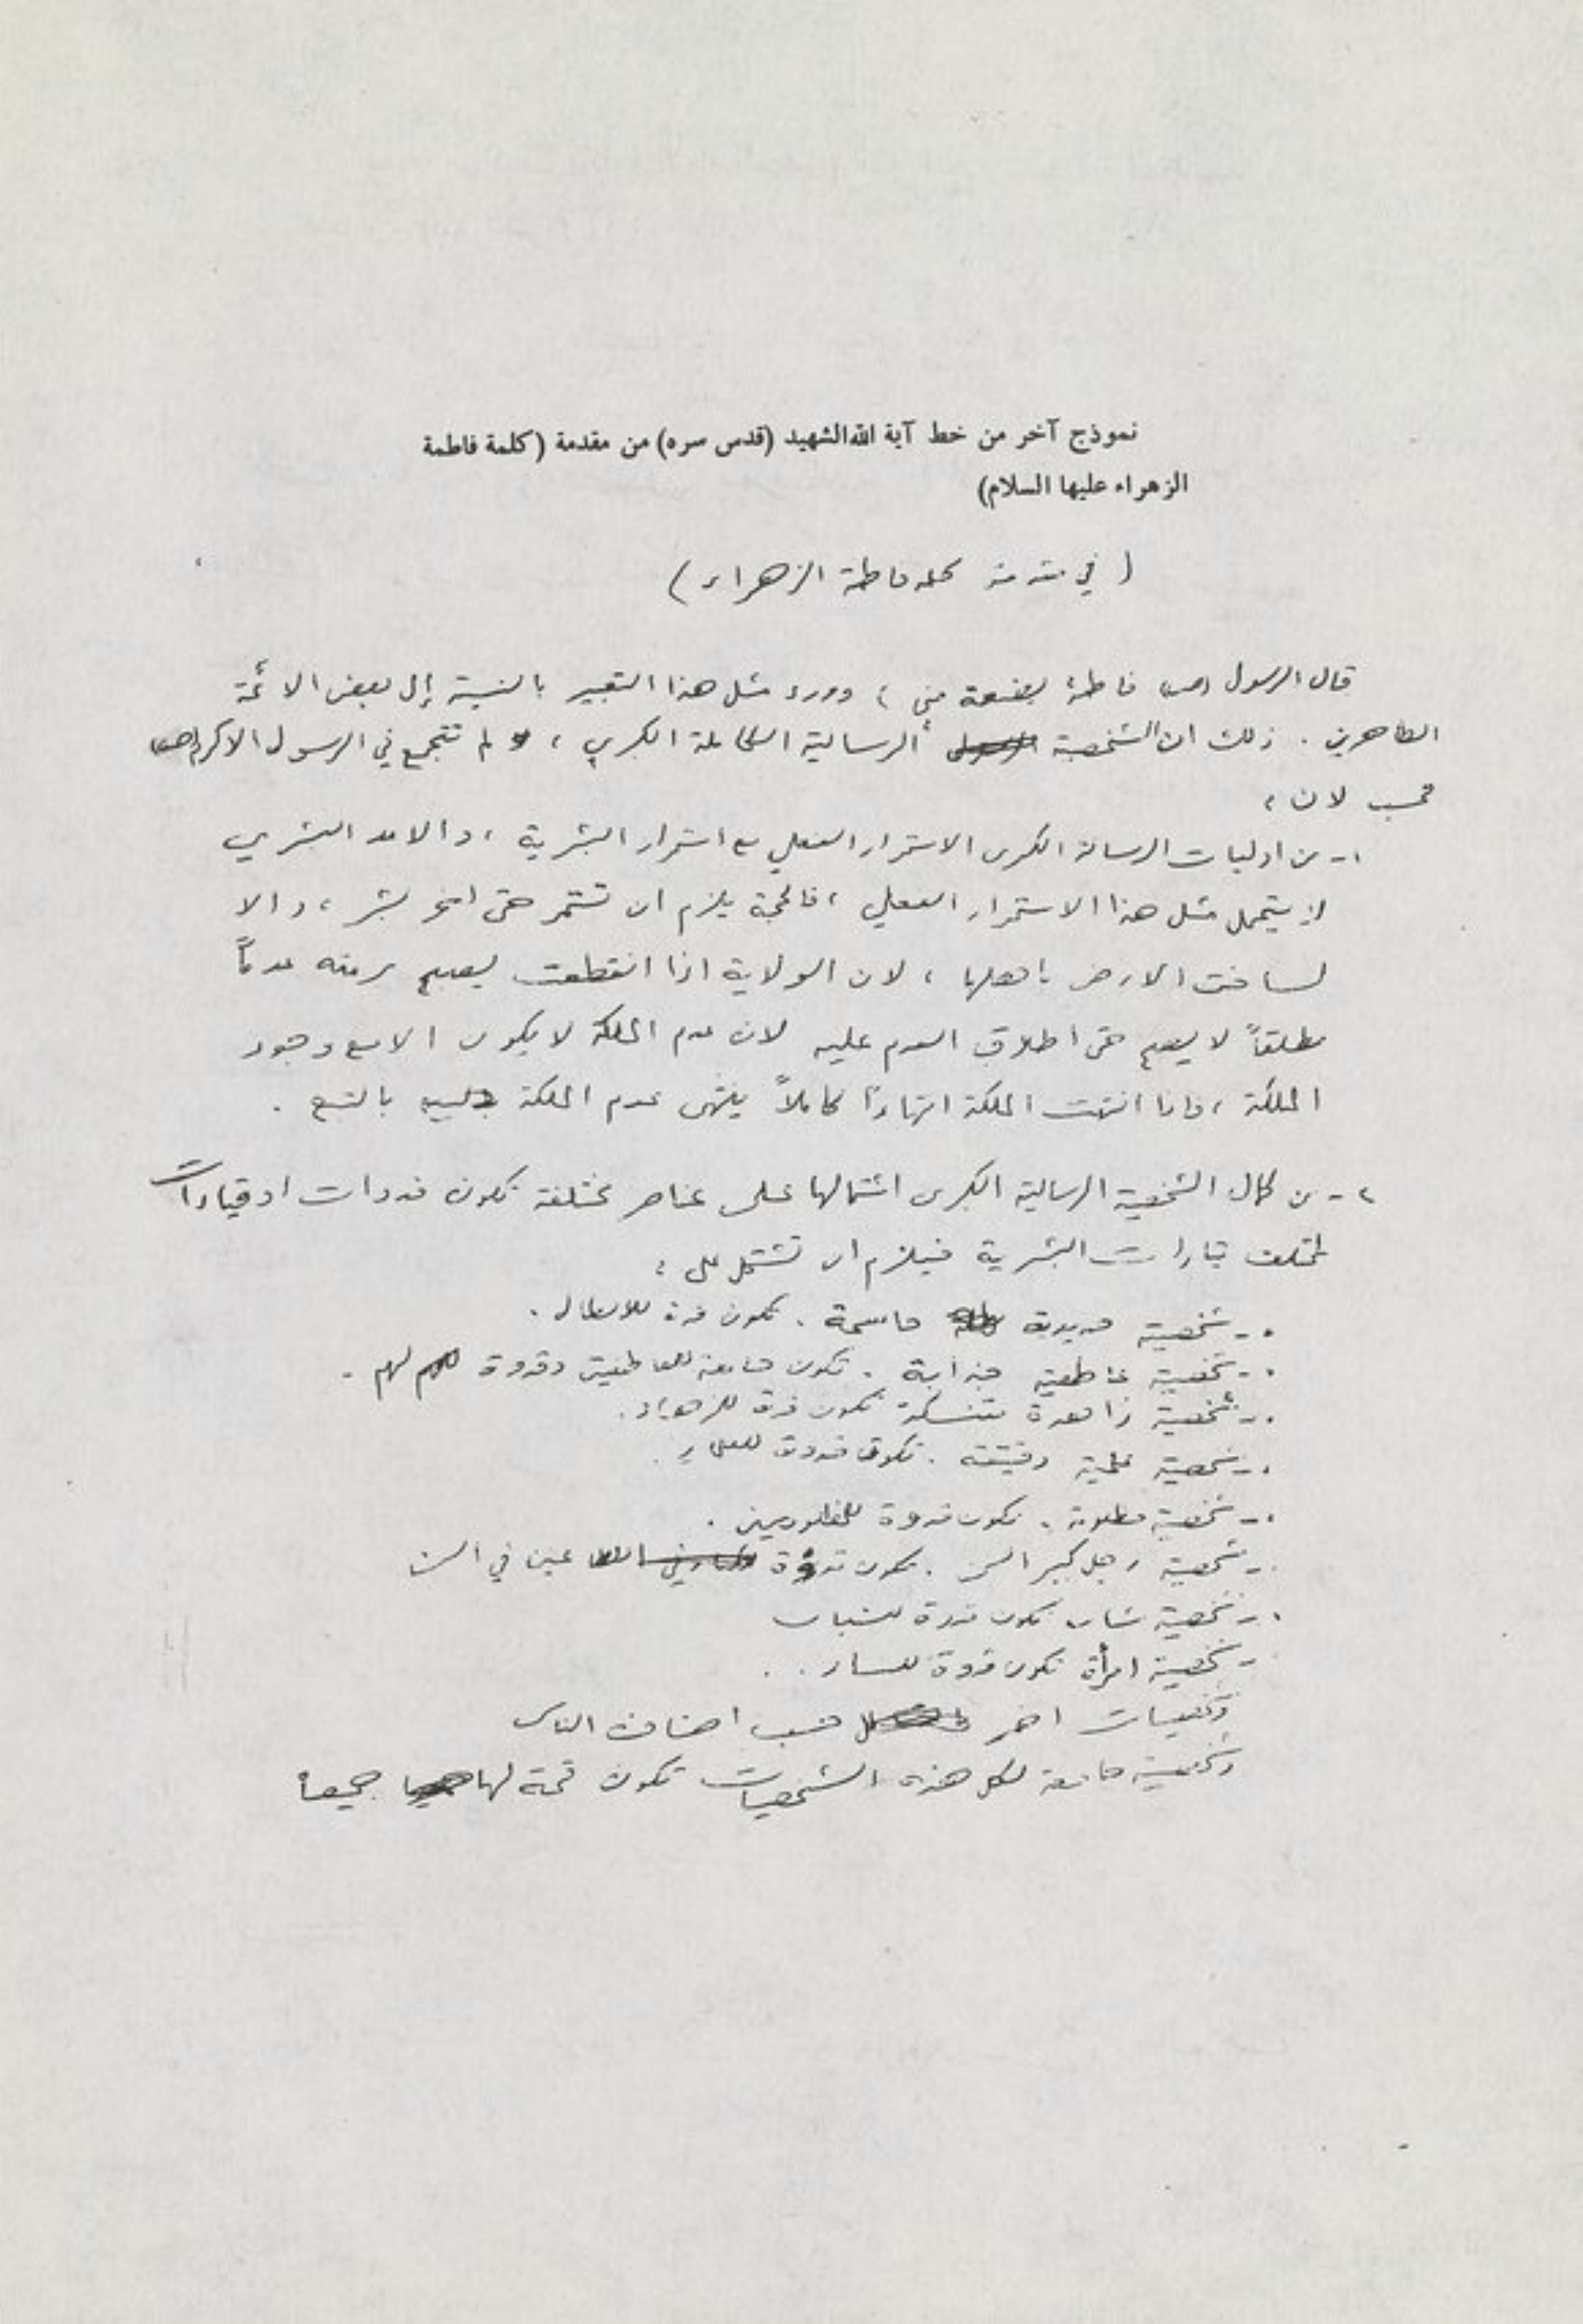 نموذج آخر من خط آية الله الشهيد (قدس سره) من مقدمة (كلمة فاطمة
الزهراء عليها السلام)
( في مقدمة كلمة فاطمة الزهراء )
قال الرسول (ص) فاطمة بضعة مني ) وورد مثل هذا التعبير بالنسبة إلى بعض الائمة
الطاهرين . ذلك ان الشخصية الرسالية الكاملة الكبرى ، لم تتجمع في الرسول الاكرم (ص)
فحسب لان :
١- من اوليات الرسالة الكبرى الاستمرار الفعلي مع استمرار البشرية ، والامد البشري
لا يتحمل مثل هذا الاستمرار الفعلي ، فالحجة يلزم ان تستمر حتى آخر بشر ، والا
لساخت الارض باهلها ، لان الولاية اذا انقطعت يصبح عدماً
مطلقاً لا يصح حتى اطلاق العدم عليه لان عدم الملكة لا يكون الا مع وجود
الملكة ، فاذا انتهت الملكة انتهاءاً كاملاً ينتهي عدم الملكة بالتبع .
٢- من كمال الشخصية الرسالية الكبرى اشتمالها على عناصر مختلفة تكون قدوات او قيادات
لمختلف تيارات البشرية فيلزم ان تشتمل على :
.- شخصية حديدية حاسمة . تكون قدوة للابطال .
.- شخصية عاطفية جذابة . تكون جامعة للعاطفيين وقدوة لهم .
.- شخصية زاهدة متنسكة تكون قدوة للزهاد .
.- شخصية علمية دقيقة . تكون قدوة للعلماء .
.- شخصية مظلومة . تكون قدوة للمظلومين .
.- شخصية رجل كبير السن . تكون قدوة للطاعنين في السن
.- شخصية شاب تكون قدوة للشباب
- شخصية امرأة تكون قدوة للنساء . .
وشخصيات اخر حسب اصناف الناس
وشخصية جامعة لكل هذه الشخصيات تكون قمة لها جميعاً